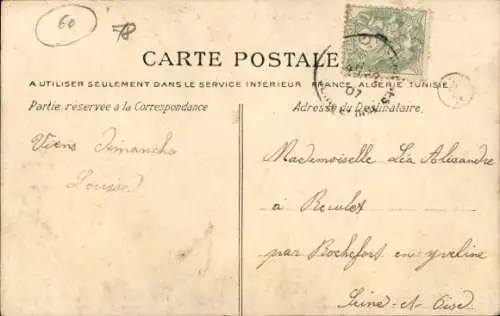 60
78
CARTE POSTALE
A UTILISER SEULEMENT DANS LE SERVICE INTÉRIEUR FRANCE, ALGÉRIE, TUNISIE
Partie réservée à la Correspondance
Adresse du Destinataire.
Viens Dimanche
Louise
Mademoiselle Léa Alixandre
à
par Rochefort en-yveline
Seine-et-Oise